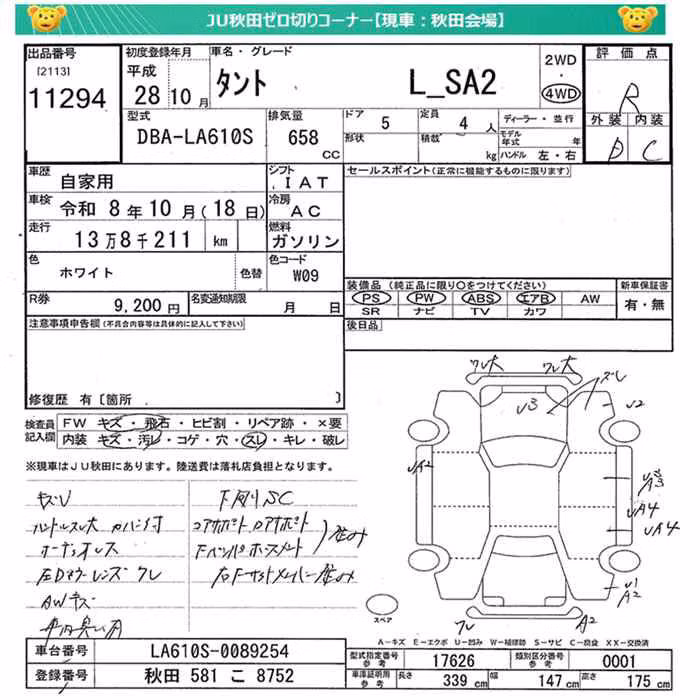 JU秋田ゼロ切りコーナー【現車：秋田会場】
出品番号
[2113]
11294
初度登録年月
平成
28年10月
車名・グレード
タント L_SA2
2WD
・
4WD
評価点
R
外装 内装
D C
型式
DBA-LA610S
排気量
658
CC
ドア 5
形状
定員 4 人
積載 kg
ディーラー・並行
モデル年式 年
ハンドル 左・右
車歴
自家用
シフト
IAT
車検
令和 8年10月(18日)
冷房
AC
走行
13万8千211 km
燃料
ガソリン
色
ホワイト
色替
色コード
W09
R券
9,200円
名変通知期限
月 日
セールスポイント(正常に機能するものに限ります)
装備品(純正品に限り○をつけてください)
PS PW ABS エアB AW
SR ナビ TV カワ
新車保証書
有・無
後日品
注意事項申告欄(不具合内容等は具体的に記入して下さい)
修復歴 有〔箇所 〕
検査員記入欄
FW キズ・飛石・ヒビ割・リペア跡・×要
内装 キズ・汚レ・コゲ・穴・スレ・キレ・破レ
※現車はJU秋田にあります。陸送費は落札店負担となります。
キズU
下廻りSC
ハンドルスレ大 カバー付
コアサポート ロアサポート
オーディオレス
左Dミラーレンズワレ
AWキズ
ワレ大 ワレ大
ズレ
U3
U2
UA2
UA3
UA4
UA4
U1
A2
ワレ A2
スペア
A-キズ E-エクボ U-凹み W-補修跡 S-サビ C-腐食 XX-交換済
車台番号
LA610S-0089254
登録番号
秋田 581 こ 8752
型式指定番号 参考
17626
類別区分番号 参考
0001
車庫証明用 参考
長さ 339 cm
幅 147 cm
高さ 175 cm